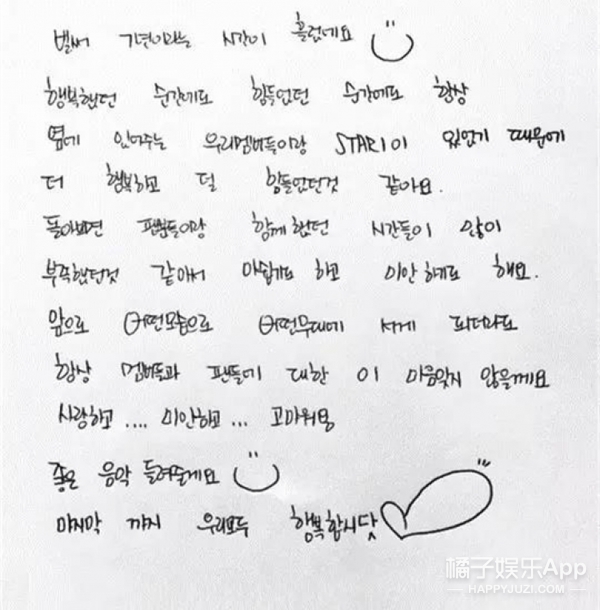 벌써 7년이라는 시간이 흘렀네요
행복했던 순간에도 힘들었던 순간에도 항상
옆에 있어주는 우리멤버들이랑 STAR1이 있었기 때문에
더 행복하고 덜 힘들었던것 같아요.
돌아보면 팬분들이랑 함께했던 시간들이 많이
부족했던것 같아서 아쉽기도 하고 미안하기도 해요.
앞으로 어떤모습으로 어떤무대에 서게 되더라도
항상 멤버들과 팬들에 대한 이 마음잊지 않을께요
사랑하고 .... 미안하고 ... 고마워용
좋은 음악 들려줄게요
마지막 까지 우리모두 행복합시닷
橘子娱乐App
HAPPYJUZI.COM